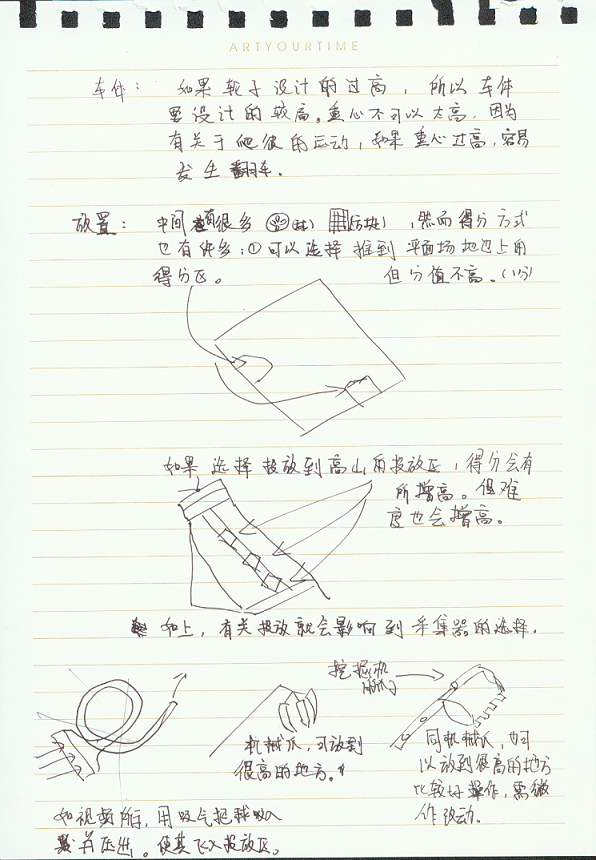 ARTYOURTIME
车件： 如果轮子设计的过高，所以车体
要设计的较高。重心不可以太高，因为
有关于爬坡的运动，如果重心过高，容易
发生翻车。
放置： 中间有很多 (球) (方块)，然而得分方式
也有许多：①可以选择推到平面场地边上角
得分区。 但分值不高。(1分)
如果选择投放到高山角投放区，得分会有
所增高。但难
度也会增高。
如上，有关投放就会影响到采集器的选择。
挖掘机
机械爪，可放到
很高的地方。
同机械爪，也可
以放到很高的地方
比较好操作，需微
作改动。
如视频所，用吸气把球吸入
并压出。使其飞入投放区。